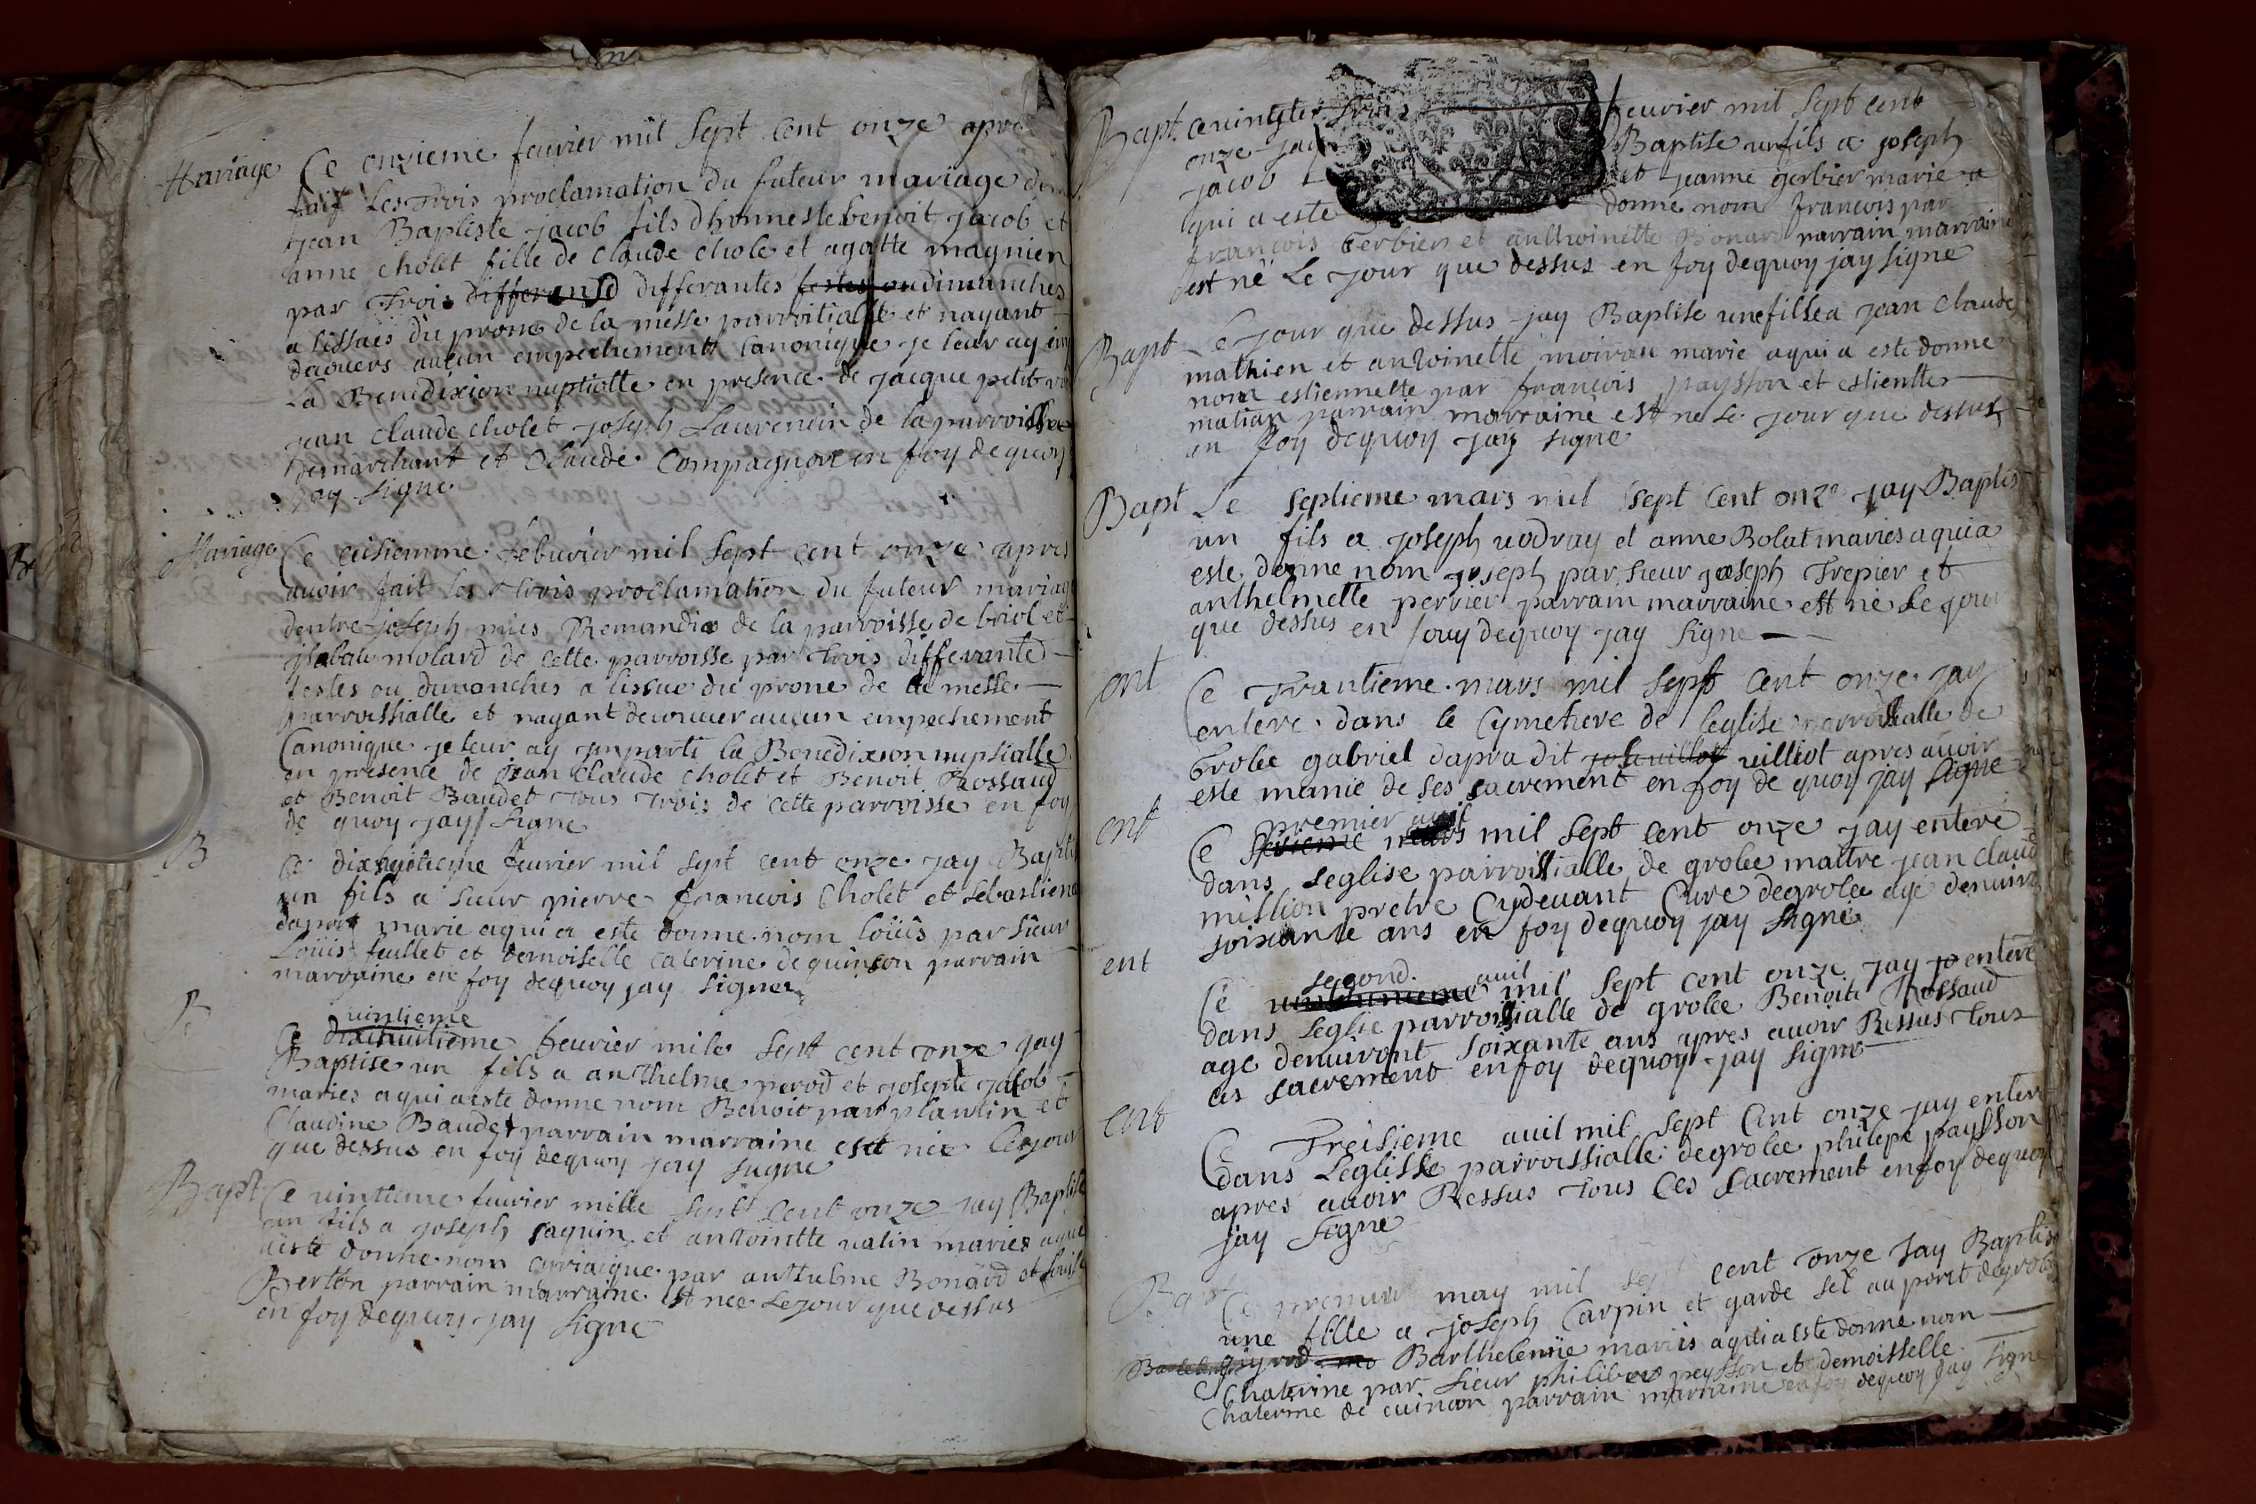 Mariage Ce onzieme feurier mil sept cent onze apre
fait les trois proclamation du futeur mariage
jean Baptiste jacob fils dhonneste benoit jacob et
anne cholet fille de claude chole et agatte magnien
par trois differansd differantes festes ou dimanches
a lissues du prone de la messe parroitialle et nayant
decouers aucun empechement canonique je leur ay
La Benedixion nuptialle en presence de jacque petit
jean claude cholet joseph Laurencin de la parroisse
demarchant et claude compagnon en foy de quoy
jay signe
Mariage Ce febvrier mil sept cent onze apres
auoir fait les trois proclamation du futeur mariage
dentre joseph mies Remandix de la parroisse de briol et
jsabale molard de cette parroisse par trois differante
festes ou dimanches a lissue du prone de la messe
parroissialle et nayant decouuer aucun empechement
Canonique je leur ay jmparti la Benedixion nupsialle
en presence de jean claude cholet et Benoit Rossaud
et Benoit Baudet tous trois de cette parroisse en foy
de quoy jay signe
B Ce dixhuitieme feurier mil sept cent onze jay Bapti
un fils a sieur pierre francois cholet et sebastiene
marie aqui a este donne nom loüis par sieur
Loüis feullet et demoiselle caterine dequinson parrain
marraine en foy dequoy jay signe
uintieme
Ce dixhuitieme feurier mile sept cent onze jay
Baptise un fils a anthelme perod et josepte jacob
maries aqui aeste donne nom Benoit par plantin et
Claudine Baudet parrain marraine est nee le jour
que dessus en foy dequoy jay signe
Bapt Ce uintieme feurier mille sept cent onze jay Baptise
un fils a joseph saquin et antoinette ualin maries aqui
aeste donne nom par anthelme Bonard et
Berton parrain marraine est nee le jour que dessus
en foy dequoy jay signe
Bapt. ce uingtet trois feurier mil sept cent
onze jay Baptise un fils a joseph
jacob et jeanne gerbier marie a
qui a este donne nom francois par
francois Gerbier et anthoinette Bonard parrain marraine
est né le jour que dessus en foy dequoy jay signe
Bapt Le jour que dessus jay Baptise une fille a jean claude
mathien et antoinette moiran marie aqui a este donne
nom estiennette par francois paysson et estientte
matian parrain marraine est ne le jour que dessus
en foy dequoy jay signe
Bapt Le septieme mars mil sept cent onze jay Baptis
un fils a joseph uodray et anne Bolat maries aquia
este donne nom joseph par sieur joseph Trepier et
anthelmette perrier parrain marraine est né le jour
que dessus en fouy dequoy jay signe
ent Ce Trantieme mars mil sept cent onze jay
entere dans le cymetiere de leglise parroissialle de
Grolee gabriel dapra dit uilliot apres auoir
este manie de ses sacrement en foy de quoy jay signe
premier auil
ent Ce mars mil sept cent onze jay entere
dans leglise parroissialle de grolee maitre jean claud
million pretre Cydeuant Cure degrolee age denuiron
soixante ans en foy dequoy jay signe
second auil
ent Ce mil sept cent onze jay entere
dans leglie parroissialle de grolee Benoite Rossaud
age denuiront soixante ans apres auoir Ressus tous
ces sacrement en foy dequoy jay signe
ent Ce Treisieme auil mil sept cent onze jay entere
dans Leglisse parroissialle degrolee philepe paysson
apres auoir Ressus tous ces sacrement en foy dequoy
jay signe
Bapt Ce premier may mil sept cent onze jay Baptise
une fille a joseph Carpin et garde sel au port degrolee
Barthelemie maries aquia este donne nom
Chaterine par sieur philiber peysson et demoisselle
Chaterine de cuinson parrain marraine en foy dequoy jay signe